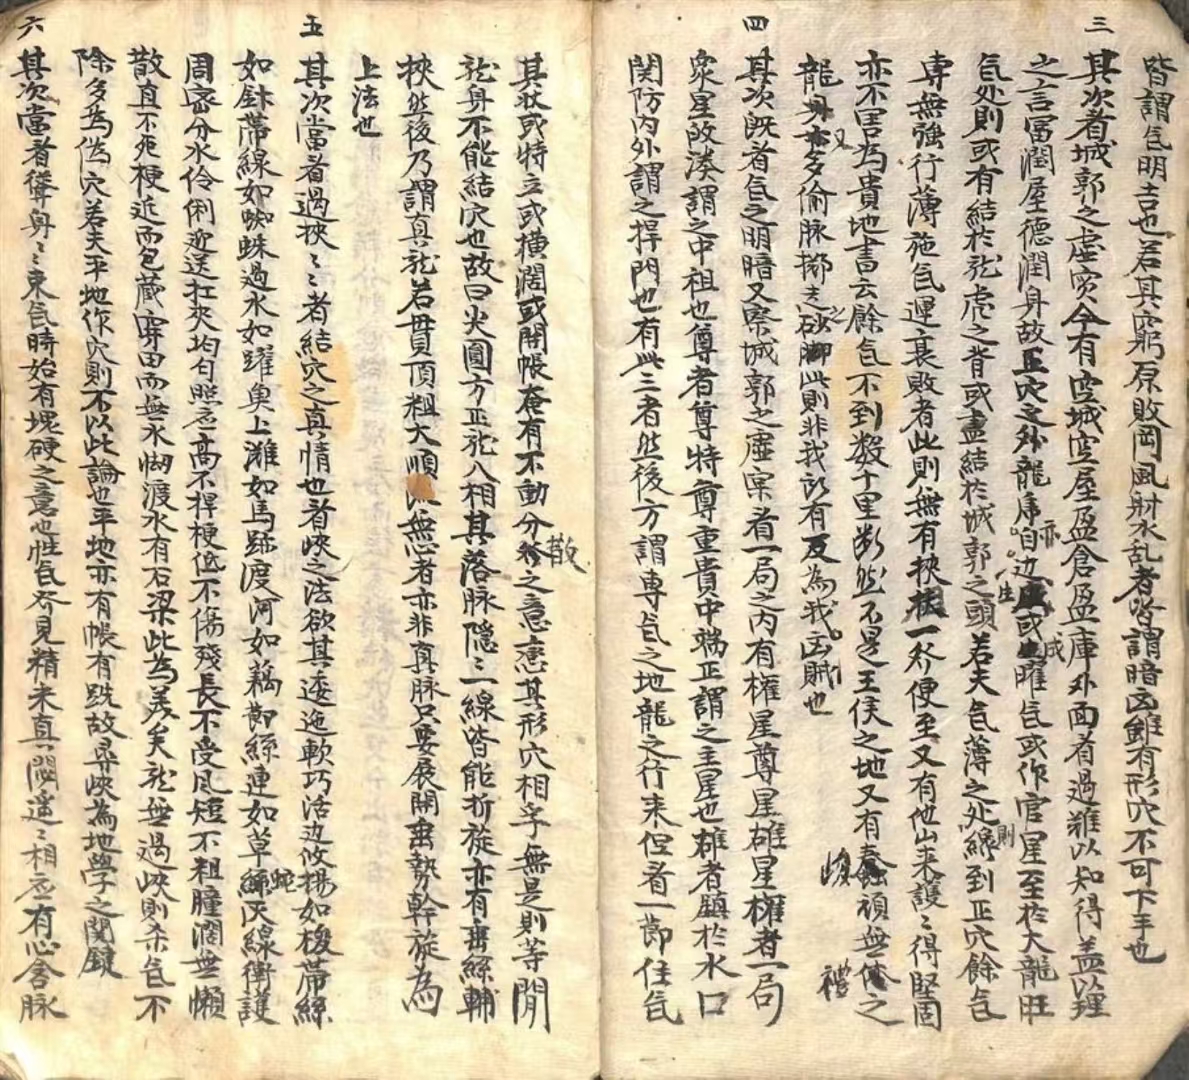 皆謂气明吉也若其窮原敗岡風射水乱者皆謂暗凶雖有形穴不可下手也
三
其次看城郭之虛实今有空城空屋盈倉盈庫外面看過难以知得盖以理
之言富潤屋德潤身故正穴之外龍虎白边或曜气或作官星至於大龍旺
气处則或有結於龍虎之背或盡結於城郭之頭若夫气薄之处則到正穴餘气
專無強行薄施气運衰敗者此則無有挾扶一发便至又有他山来護〻得堅固
亦不害為貴地書云餘气不到数十里断然不是王侯之地又有蠢頑無之
龍又多偷脉擲去砂脚此則非我所有反為我凶賊也
四
其次既看气之明暗又察城郭之虛実看一局之内有權星尊星雄星權者一局
衆星敀湊謂之中祖也尊者尊特尊重貴中端正謂之主星也雄者鎮於水口
関防内外謂之捍門也有此三者然後方謂專气之地龍之行来但看一節住气
其狀或特立或横濶或開帳奄有不動分散之意悪其形穴相乎無是則等閒
龍身不能結穴也故曰火圓方正龍八相其落脉隐〻一線皆能折旋亦有垂絲輔
挾然後乃謂真龍若貫頂粗大順無心者亦非真脉只要展開垂勢幹旋為
上法也
五
其次當看過挾〻者結穴之真情也看峽之法欲其逶迤軟巧活边攸揚如梭帶絲
如針帶線如蜘蛛過水如躍臾上灘如馬跡渡河如藕節絲連如草蛇灰線衝護
周密分水伶俐迎送扛夾均匀照应高不捍梗低不傷殘長不受風短不粗膧濶無懶
散直不死梗近而包藏穿田而無水脚渡水有石梁此為美矣龍無過峽則杀气不
除多為偽穴若夫平地作穴則不以此論也平地亦有帳有跌故尋峽為地學之関鍵
六
其次當看聳身〻来气時始有塊硬之意也性气发見精来真閟遙〻相应有心含脉
散
亦
生
成
則
峻
禮
蛇